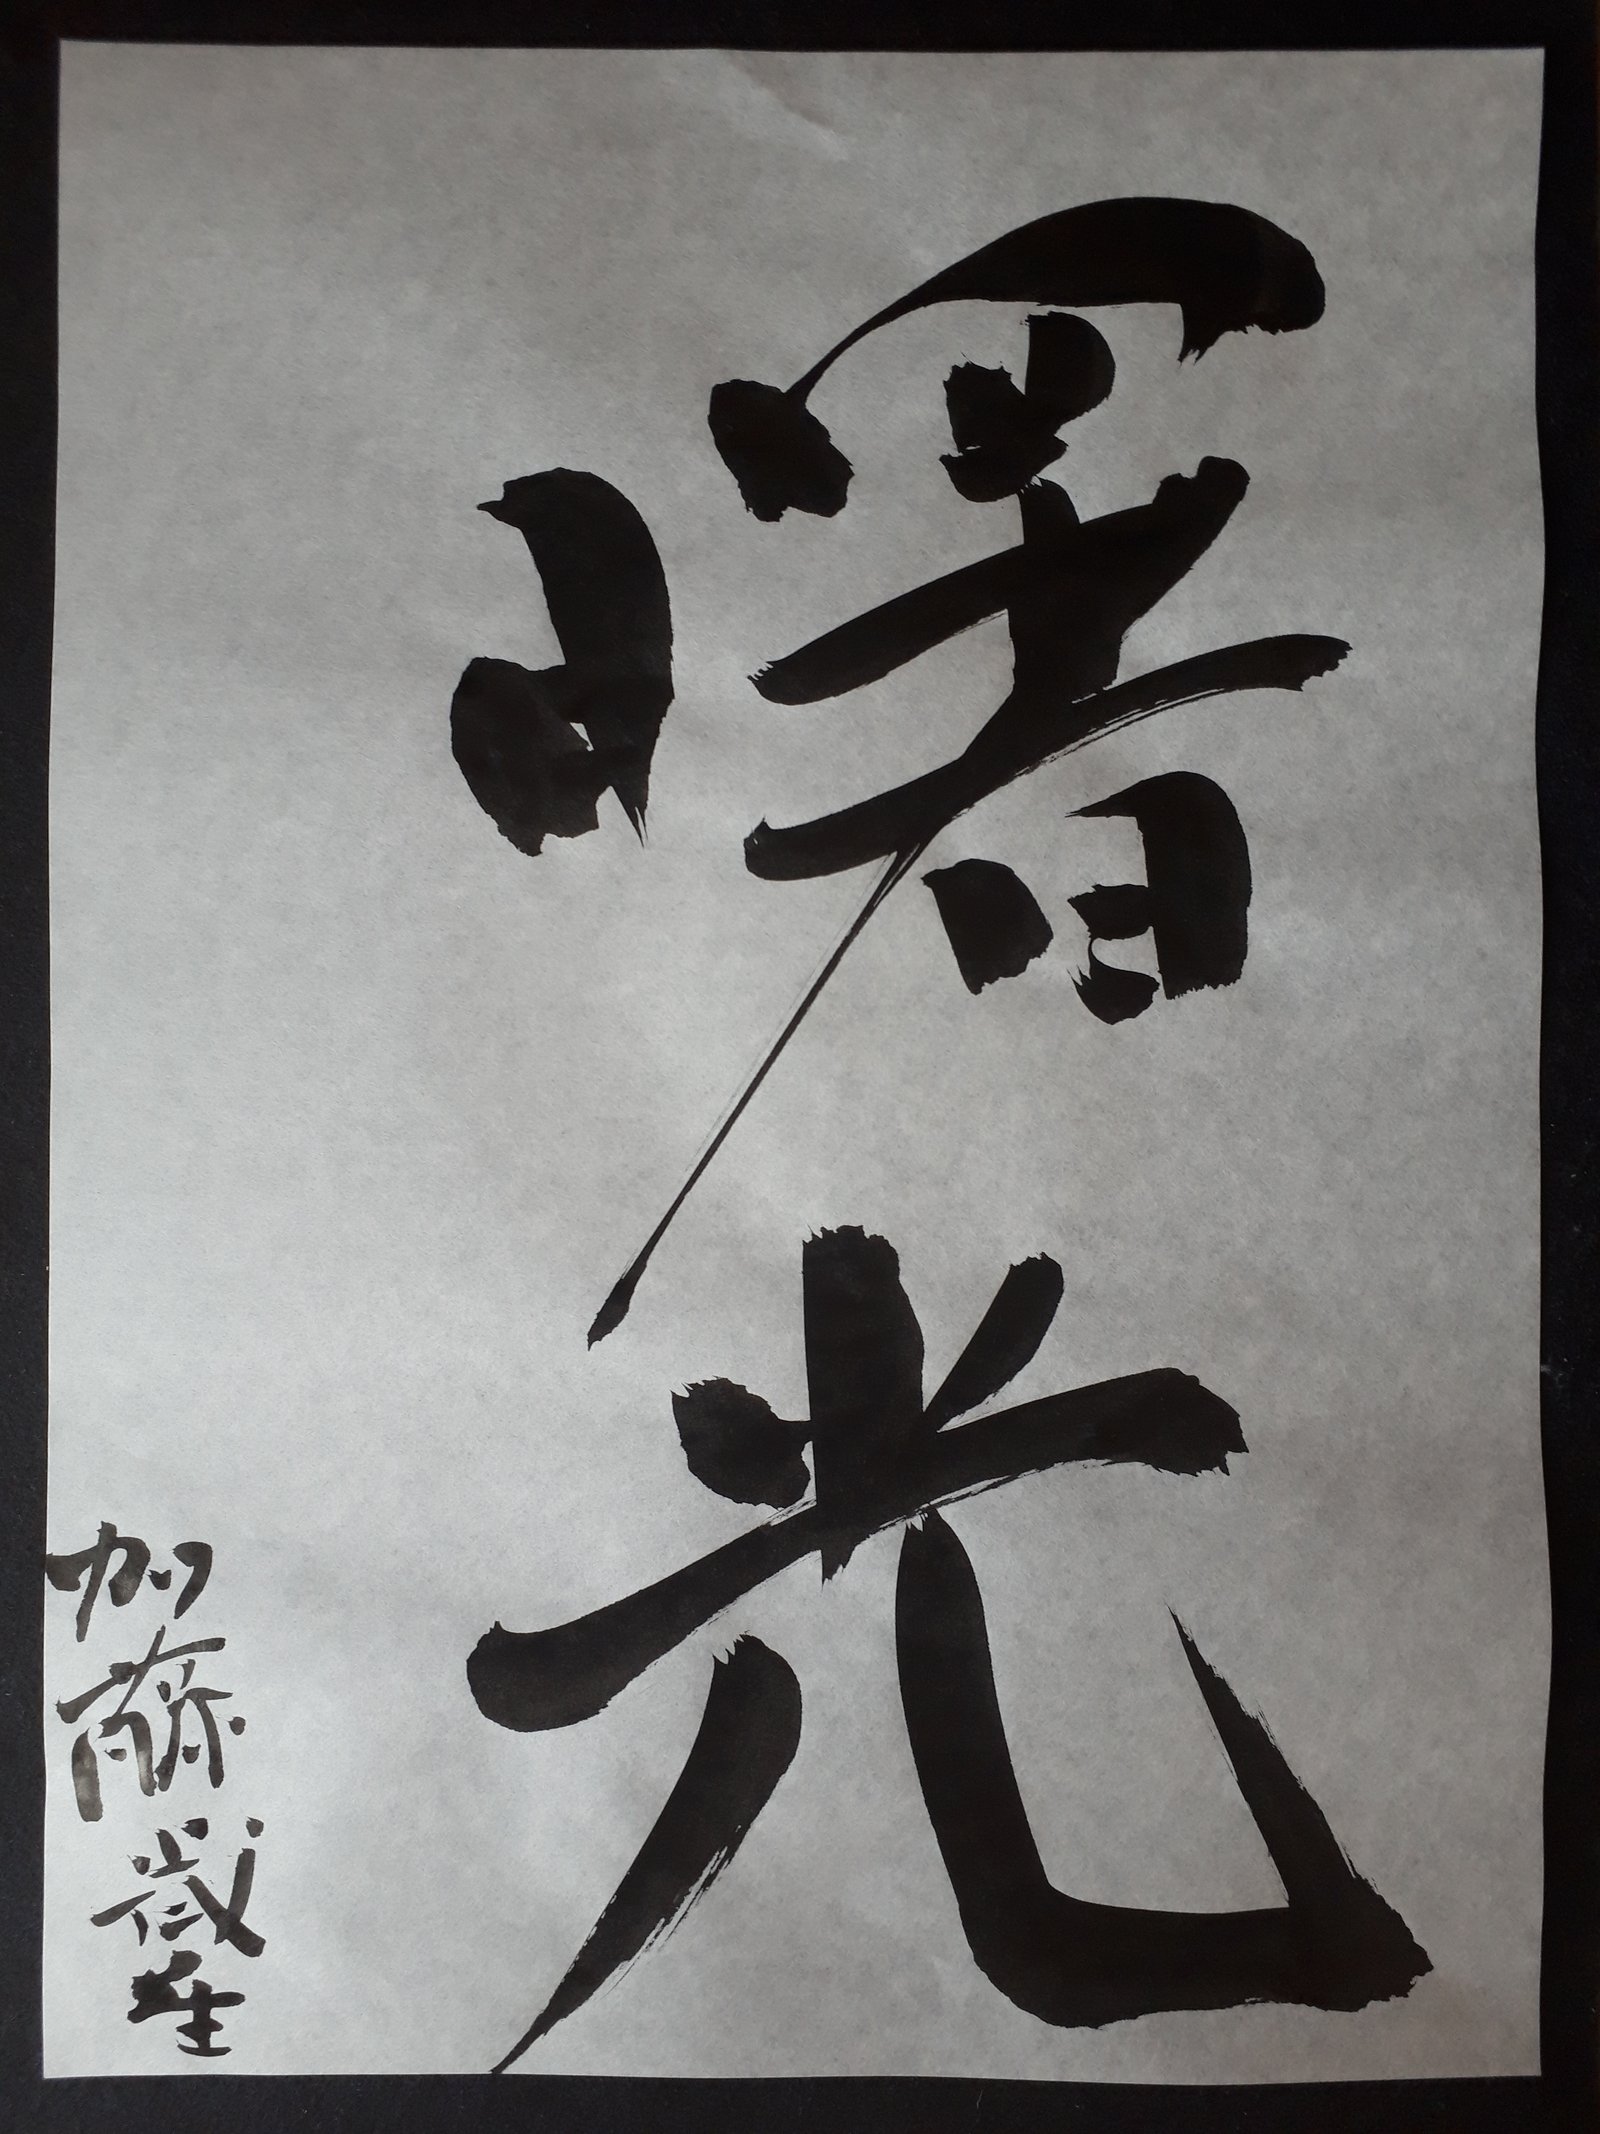 曙光
加藤歳生